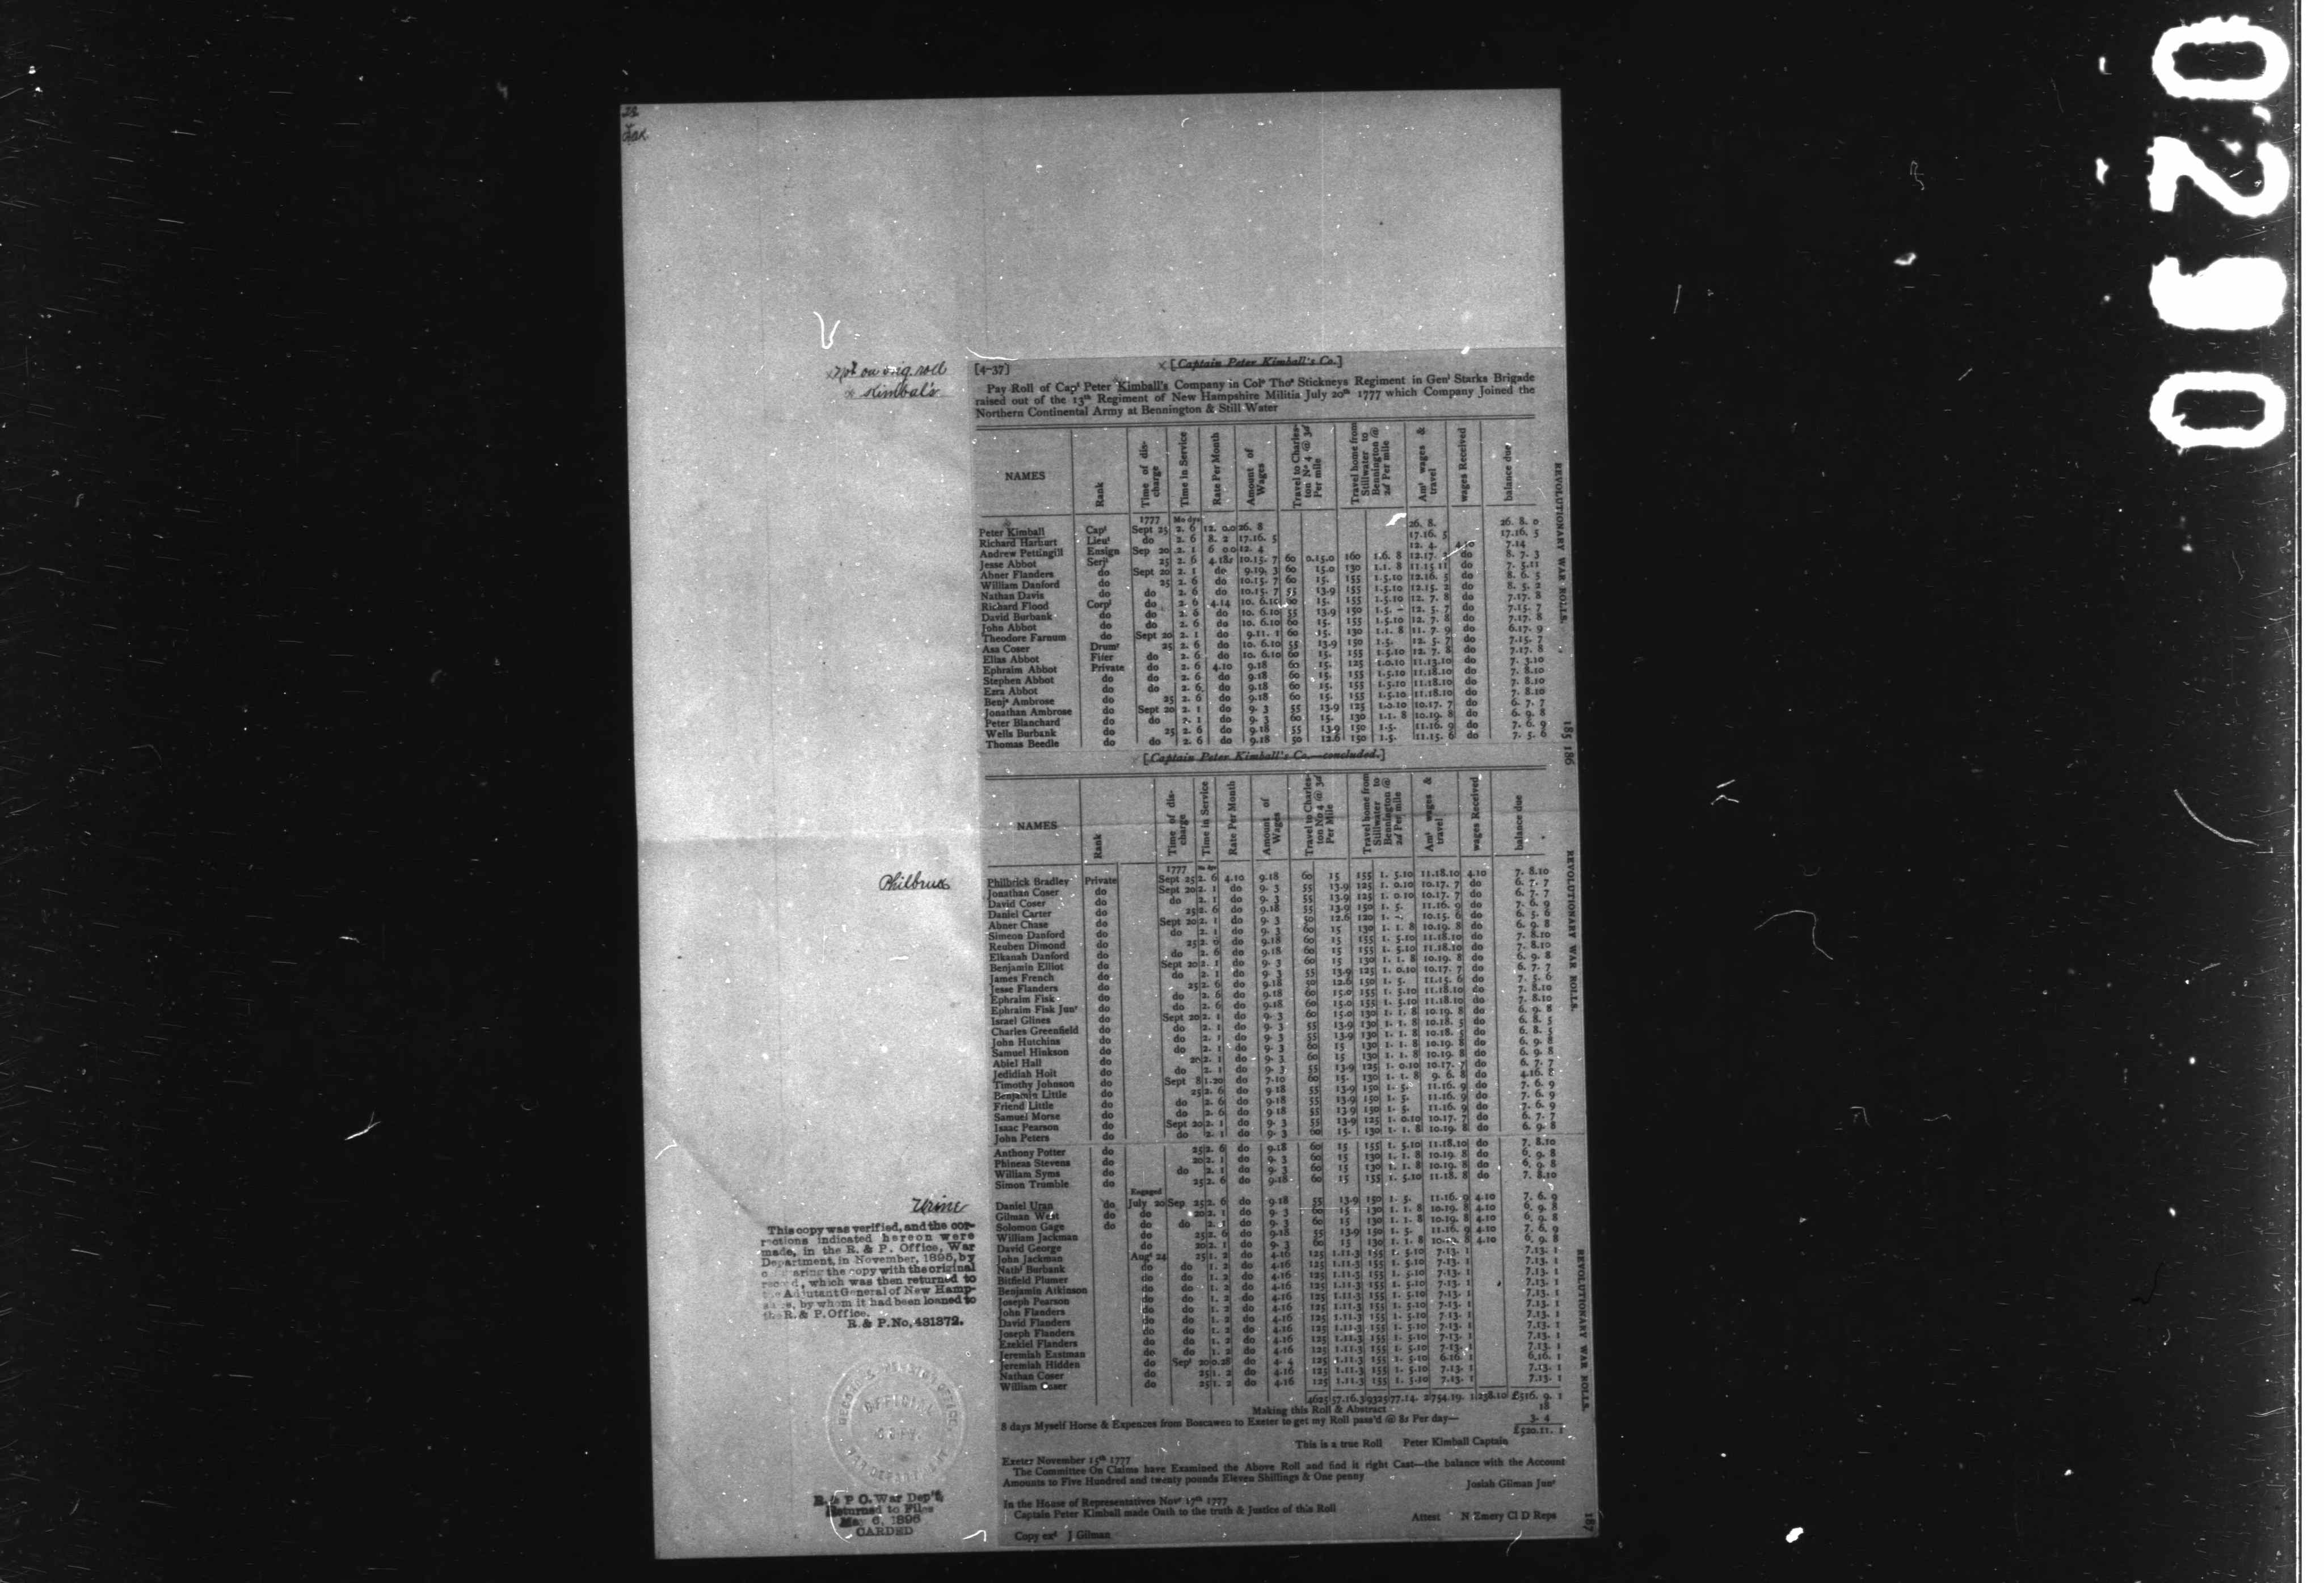 0290
[4-37]
[Captain Peter Kimball's Co.]
Pay Roll of Capt Peter Kimball's Company in Colo Thos Stickneys Regiment in Genl Starks Brigade
raised out of the 13th Regiment of New Hampshire Militia July 20th 1777 which Company Joined the
Northern Continental Army at Bennington & Still Water
x Not on orig. roll
Kimbal's
NAMES Rank Time of discharge Time in Service Rate Per Month Amount of Wages Travel to Charleston No 4 @ 3d Per mile Travel home from Stillwater to Bennington @ 2d Per mile Amt wages & travel wages Received balance due
1777 Mo dys
Peter Kimball Capt Sept 25 2. 6 12. 0.0 26. 8 26. 8. 26. 8. 0
Richard Harburt Lieut do 2. 6 8. 2 17.16. 5 17.16. 5 17.16. 5
Andrew Pettingill Ensign Sep 20 2. 1 6 0 0 12. 4 12. 4. 4.10 7.14
Jesse Abbot Serjt 25 2. 6 4.18s 10.15. 7 60 0.15.0 160 1.6. 8 12.17. 3 do 8. 7. 3
Abner Flanders do Sept 20 2. 1 do 9.19. 3 60 15.0 130 1.1. 8 11.15 11 do 7. 5.11
William Danford do 25 2. 6 do 10.15. 7 60 15. 155 1.5.10 12.16. 5 do 8. 6. 5
Nathan Davis do do 2. 6 do 10.15. 7 55 13.9 155 1.5.10 12.15. 2 do 8. 5. 2
Richard Flood Corpl do 2. 6 4.14 10. 6.10 60 15. 155 1.5.10 12. 7. 8 do 7.17. 8
David Burbank do do 2. 6 do 10. 6.10 55 13.9 150 1.5. - 12. 5. 7 do 7.15. 7
John Abbot do do 2. 6 do 10. 6.10 60 15. 155 1.5.10 12. 7. 8 do 7.17. 8
Theodore Farnum do Sept 20 2. 1 do 9.11. 1 60 15. 130 1.1. 8 11. 7. 9 do 6.17. 9
Asa Coser Drumr 25 2. 6 do 10. 6.10 55 13.9 150 1.5. 12. 5. 7 do 7.15. 7
Elias Abbot Fifer do 2. 6 do 10. 6.10 60 15. 155 1.5.10 12. 7. 8 do 7.17. 8
Ephraim Abbot Private do 2. 6 4.10 9.18 60 15. 125 1.0.10 11.13.10 do 7. 3.10
Stephen Abbot do do 2. 6 do 9.18 60 15. 155 1.5.10 11.18.10 do 7. 8.10
Ezra Abbot do do 2. 6. do 9.18 60 15. 155 1.5.10 11.18.10 do 7. 8.10
Benja Ambrose do 25 2. 6 do 9.18 60 15. 155 1.5.10 11.18.10 do 7. 8.10
Jonathan Ambrose do Sept 20 2. 1 do 9. 3 55 13.9 125 1.0.10 10.17. 7 do 6. 7. 7
Peter Blanchard do do 2. 1 do 9. 3 60 15. 130 1.1. 8 10.19. 8 do 6. 9. 8
Wells Burbank do 25 2. 6 do 9.18 55 13.9 150 1.5. 11.16. 9 do 7. 6. 9
Thomas Beedle do do 2. 6 do 9.18 50 12.6 150 1.5. 11.15. 6 do 7. 5. 6
REVOLUTIONARY WAR ROLLS.
185
186
[Captain Peter Kimball's Co.—concluded.]
NAMES Rank Time of discharge Time in Service Rate Per Month Amount of Wages Travel to Charleston No 4 @ 3d Per Mile Travel home from Stillwater to Bennington @ 2d Per mile Amt wages & travel wages Received balance due
1777
Philbrux
Philbrick Bradley Private Sept 25 2. 6 4.10 9.18 60 15 155 1. 5.10 11.18.10 4.10 7. 8.10
Jonathan Coser do Sept 20 2. 1 do 9. 3 55 13.9 125 1. 0.10 10.17. 7 do 6. 7. 7
David Coser do do 2. 1 do 9. 3 55 13.9 125 1. 0.10 10.17. 7 do 6. 7. 7
Daniel Carter do 25 2. 6 do 9.18 55 13.9 150 1. 5. 11.16. 9 do 7. 6. 9
Abner Chase do Sept 20 2. 1 do 9. 3 50 12.6 120 1. -. 10.15. 6 do 6. 5. 6
Simeon Danford do do 2. 1 do 9. 3 60 15 130 1. 1. 8 10.19. 8 do 6. 9. 8
Reuben Dimond do 25 2. 6 do 9.18 60 15 155 1. 5.10 11.18.10 do 7. 8.10
Elkanah Danford do do 2. 6 do 9.18 60 15 155 1. 5.10 11.18.10 do 7. 8.10
Benjamin Elliot do Sept 20 2. 1 do 9. 3 60 15 130 1. 1. 8 10.19. 8 do 6. 9. 8
James French do do 2. 1 do 9. 3 55 13.9 125 1. 0.10 10.17. 7 do 6. 7. 7
Jesse Flanders do 25 2. 6 do 9.18 50 12.6 150 1. 5. 11.15. 6 do 7. 5. 6
Ephraim Fisk do do 2. 6 do 9.18 60 15.0 155 1. 5.10 11.18.10 do 7. 8.10
Ephraim Fisk Junr do do 2. 6 do 9.18 60 15.0 155 1. 5.10 11.18.10 do 7. 8.10
Israel Glines do Sept 20 2. 1 do 9. 3 60 15.0 130 1. 1. 8 10.19. 8 do 6. 9. 8
Charles Greenfield do do 2. 1 do 9. 3 55 13.9 130 1. 1. 8 10.18. 5 do 6. 8. 5
John Hutchins do do 2. 1 do 9. 3 55 13.9 130 1. 1. 8 10.18. 5 do 6. 8. 5
Samuel Hinkson do do 2. 1 do 9. 3 60 15 130 1. 1. 8 10.19. 8 do 6. 9. 8
Abiel Hall do 20 2. 1 do 9. 3 60 15 130 1. 1. 8 10.19. 8 do 6. 9. 8
Jedidiah Hoit do do 2. 1 do 9. 3 55 13.9 125 1. 0.10 10.17. 7 do 6. 7. 7
Timothy Johnson do Sept 8 1.20 do 7.10 60 15. 130 1. 1. 8 9. 6. 8 do 4.16. 8
Benjamin Little do 25 2. 6 do 9.18 55 13.9 150 1. 5. 11.16. 9 do 7. 6. 9
Friend Little do do 2. 6 do 9.18 55 13.9 150 1. 5. 11.16. 9 do 7. 6. 9
Samuel Morse do do 2. 6 do 9.18 55 13.9 150 1. 5. 11.16. 9 do 7. 6. 9
Isaac Pearson do Sept 20 2. 1 do 9. 3 55 13.9 125 1. 0.10 10.17. 7 do 6. 7. 7
John Peters do do 2. 1 do 9. 3 60 15. 130 1. 1. 8 10.19. 8 do 6. 9. 8
Anthony Potter do 25 2. 6 do 9.18 60 15 155 1. 5.10 11.18.10 do 7. 8.10
Phineas Stevens do 20 2. 1 do 9. 3 60 15 130 1. 1. 8 10.19. 8 do 6. 9. 8
William Syms do do 2. 1 do 9. 3 60 15 130 1. 1. 8 10.19. 8 do 6. 9. 8
Simon Trumble do 25 2. 6 do 9.18 60 15 155 1. 5.10 11.18. 8 do 7. 8.10
Engaged
Urine
Daniel Uran do July 20 Sep 25 2. 6 do 9.18 55 13.9 150 1. 5. 11.16. 9 4.10 7. 6. 9
Gilman West do do 20 2. 1 do 9. 3 60 15 130 1. 1. 8 10.19. 8 4.10 6. 9. 8
Solomon Gage do do do 2. 1 do 9. 3 60 15 130 1. 1. 8 10.19. 8 4.10 6. 9. 8
William Jackman do 25 2. 6 do 9.18 55 13.9 150 1. 5. 11.16. 9 4.10 7. 6. 9
David George do 20 2. 1 do 9. 3 60 15 130 1. 1. 8 10.19. 8 4.10 6. 9. 8
John Jackman Augt 24 25 1. 2 do 4.16 125 1.11.3 155 1. 5.10 7.13. 1 7.13. 1
Nathl Burbank do do 1. 2 do 4.16 125 1.11.3 155 1. 5.10 7.13. 1 7.13. 1
Bitfield Plumer do do 1. 2 do 4.16 125 1.11.3 155 1. 5.10 7.13. 1 7.13. 1
Benjamin Atkinson do do 1. 2 do 4.16 125 1.11.3 155 1. 5.10 7.13. 1 7.13. 1
Joseph Pearson do do 1. 2 do 4.16 125 1.11.3 155 1. 5.10 7.13. 1 7.13. 1
John Flanders do do 1. 2 do 4.16 125 1.11.3 155 1. 5.10 7.13. 1 7.13. 1
David Flanders do do 1. 2 do 4.16 125 1.11.3 155 1. 5.10 7.13. 1 7.13. 1
Joseph Flanders do do 1. 2 do 4.16 125 1.11.3 155 1. 5.10 7.13. 1 7.13. 1
Ezekiel Flanders do do 1. 2 do 4.16 125 1.11.3 155 1. 5.10 7.13. 1 7.13. 1
Jeremiah Eastman do do 1. 2 do 4.16 125 1.11.3 155 1. 5.10 7.13. 1 7.13. 1
Jeremiah Hidden do Sept 20 0.28 do 4. 4 125 1.11.3 155 1. 5.10 6.16. 1 6.16. 1
Nathan Coser do 25 1. 2 do 4.16 125 1.11.3 155 1. 5.10 7.13. 1 7.13. 1
William Coser do 25 1. 2 do 4.16 125 1.11.3 155 1. 5.10 7.13. 1 7.13. 1
4625 57.16.3 9325 77.14. 2 754.19. 1 238.10 £516. 9. 1
Making this Roll & Abstract 18
8 days Myself Horse & Expences from Boscawen to Exeter to get my Roll pass'd @ 8s Per day— 3. 4
£520.11. 1
This is a true Roll Peter Kimball Captain
Exeter November 15th 1777
The Committee On Claims have Examined the Above Roll and find it right Cast—the balance with the Account
Amounts to Five Hundred and twenty pounds Eleven Shillings & One penny
Josiah Gilman Junr
In the House of Representatives Novr 17th 1777
Captain Peter Kimball made Oath to the truth & Justice of this Roll
Attest N Emery Cl D Reps
Copy exd J Gilman
REVOLUTIONARY WAR ROLLS.
REVOLUTIONARY WAR ROLLS.
187
This copy was verified, and the cor-
rections indicated hereon were
made, in the R. & P. Office, War
Department, in November, 1895, by
comparing the copy with the original
record, which was then returned to
the Adjutant General of New Hamp-
shire, by whom it had been loaned to
the R. & P. Office.
R. & P. No, 431372.
OFFICIAL
COPY
R. & P O. War Dep't,
Returned to Files
May 6, 1896
CARDED